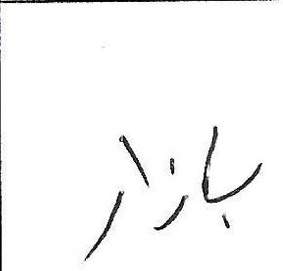 بازار